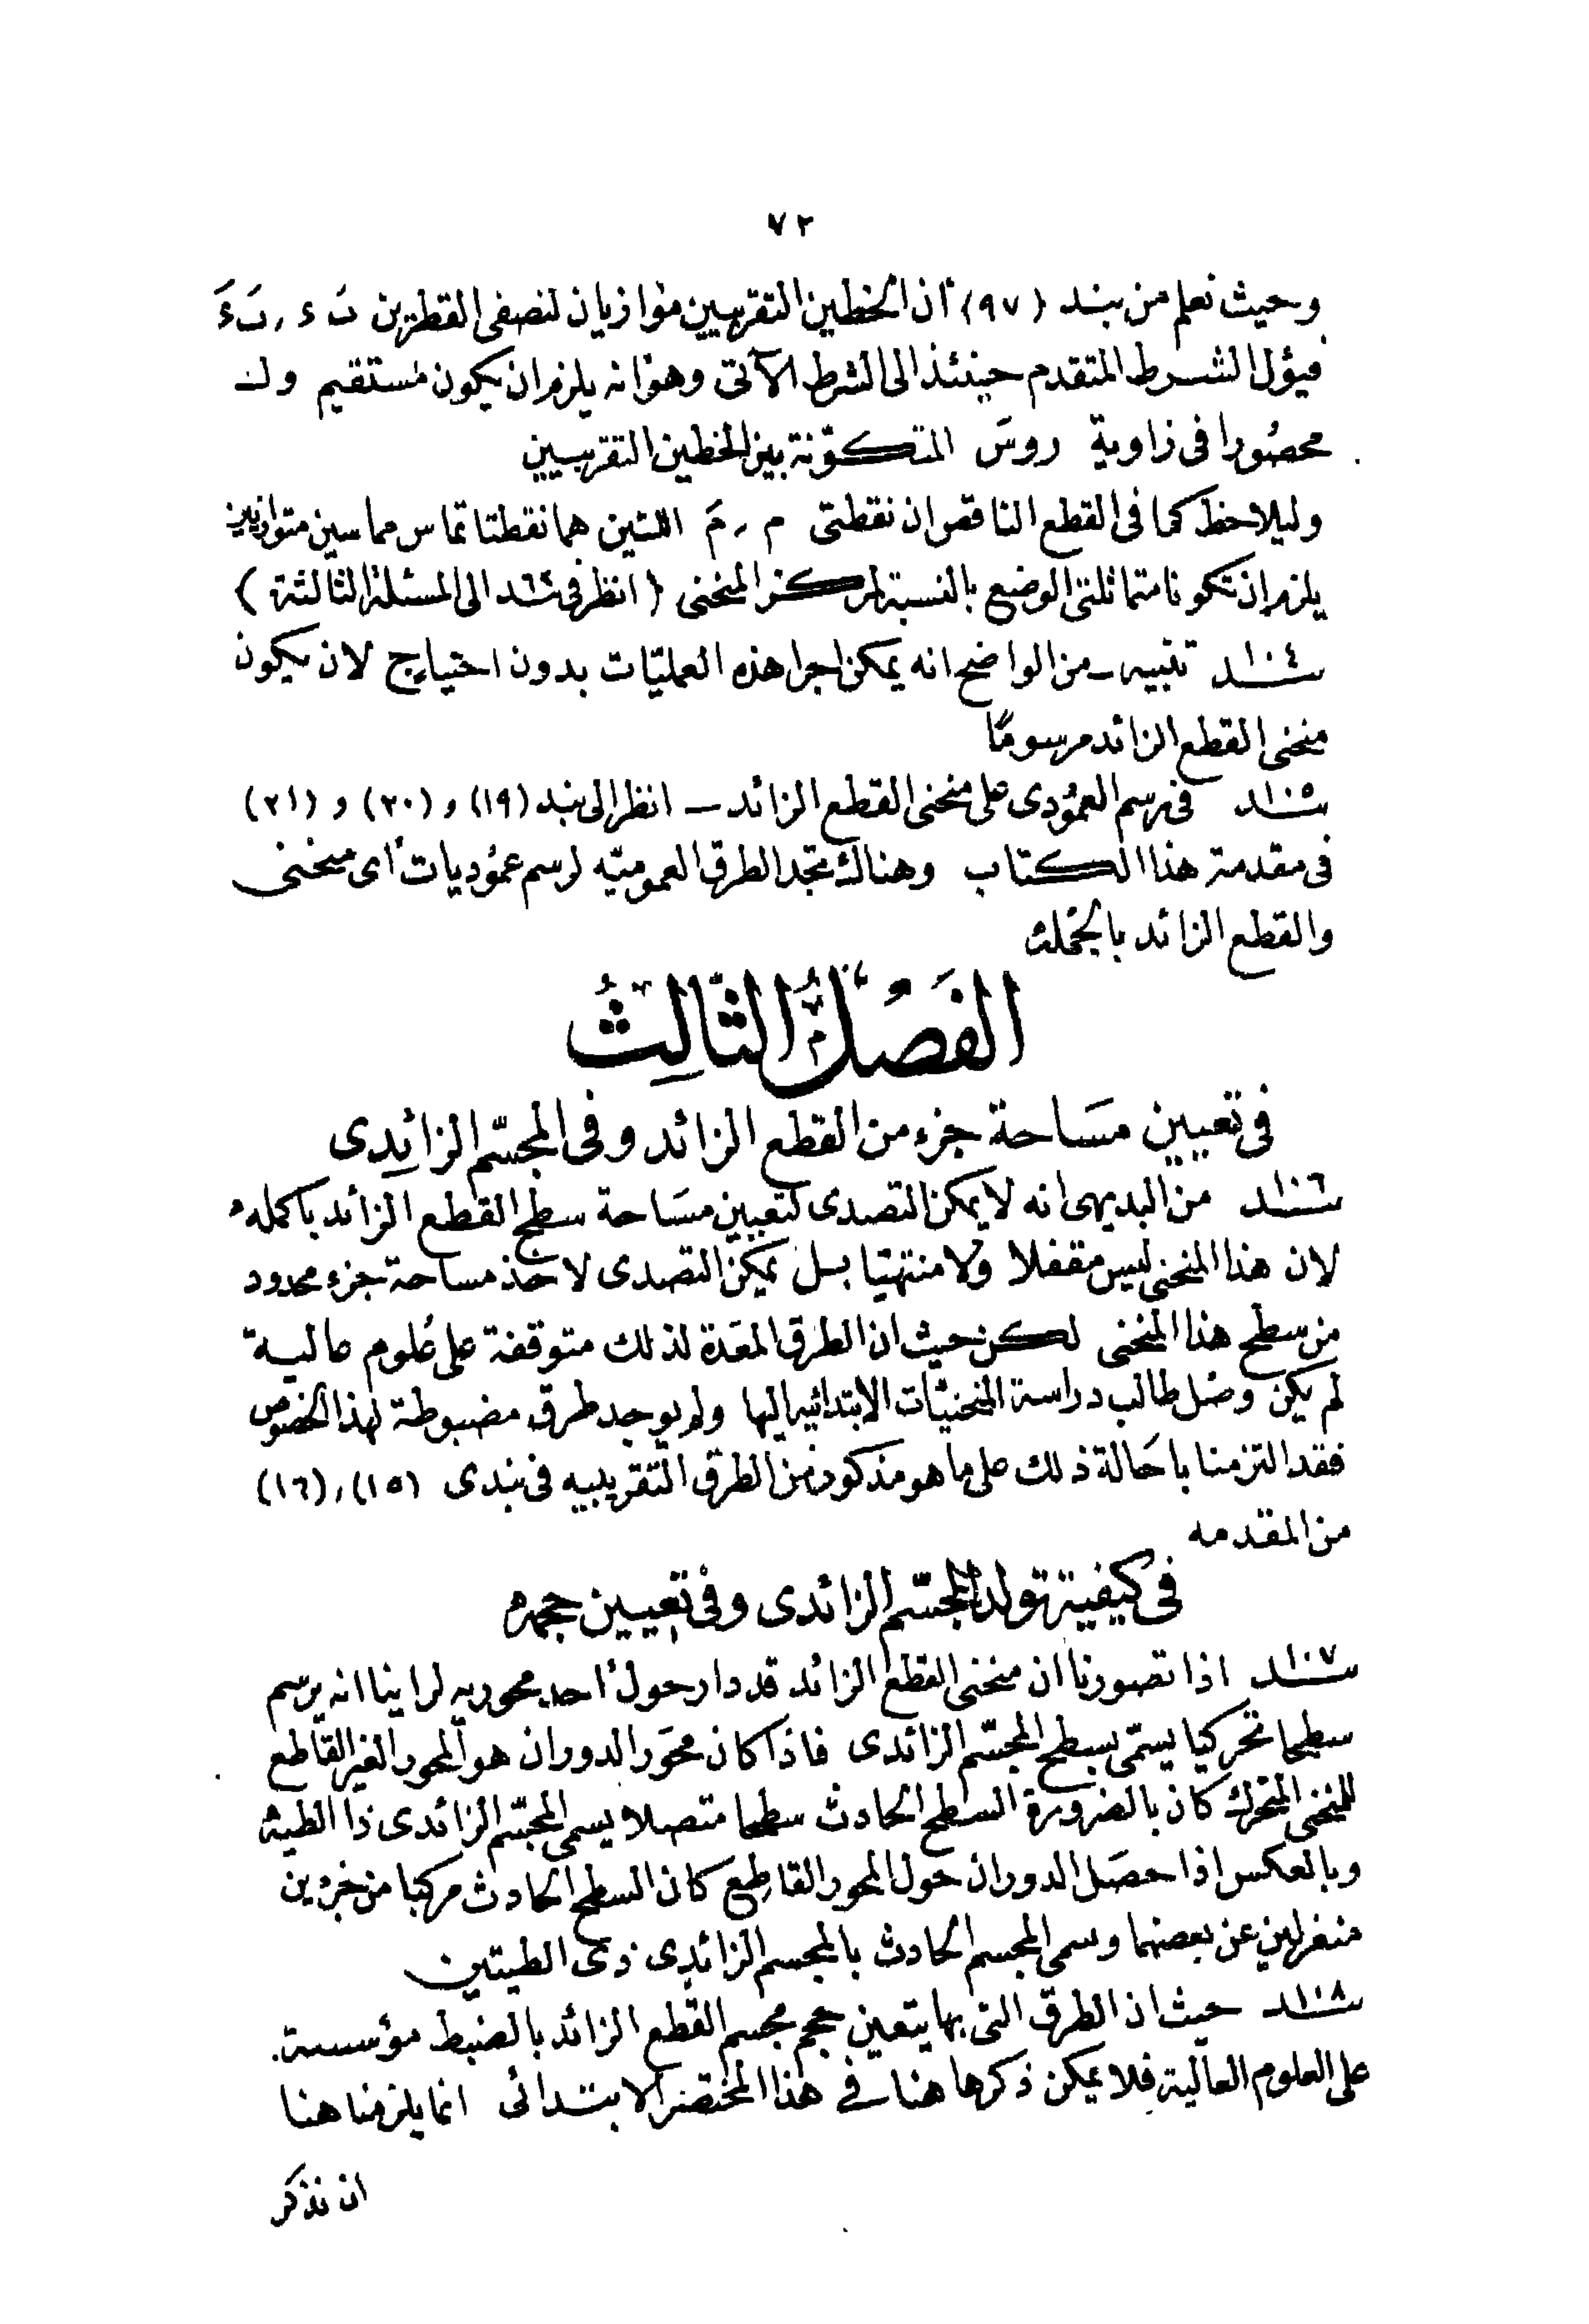 ٧٢
وحيث نعلم من بند (٩٧) أن الخطين التقريبيين موازيان لنصفى القطرين ىَ ء , ىَ ءَ
فيؤل الشرط المتقدم حينئذ الى الشرط الآتى وهو أنه يلزم ان يكون مستقيم و ك
محصورا فى زاوية روسَ المتكوّنة بين الخطين التقريبيين
وليلاحظ كما فى القطع الناقص ان نقطتى م , مَ اللتين هما نقطتا تماس مماسين متوازيين
يلزم ان تكونا متماثلتى الوضع بالنسبة لمركز المنحنى (انظر فى بند الى المسئلة الثالثة)
١٠٤ بند تنبيه ـ من الواضح انه يمكن اجرا هذه العمليّات بدون احتياج لان يكون
منحنى القطع الزائد مرسومًا
١٠٥ بند فى رسم العمودى على منحنى القطع الزائد ـ انظر الى بند (١٩) و (٢٠) و (٢١)
فى مقدمة هذا الكتاب وهناك تجد الطرق العموميّه لرسم عموديات أى منحنى
والقطع الزائد بالجمله
الفَصْلُ الثَّالِثُ
فى تعيين مسَاحة جزء من القطع الزائد وفى المجسّم الزائِدى
١٠٦ بند من البديهى انه لا يمكن التصدى لتعيين مسَاحة سطح القطع الزائد باكمله
لان هذا المنحنى ليس مقفلا ولا منتهيّا بل يمكن التصدى لاخذ مساحة جزء محدود
من سطح هذا المنحنى لكن حيث ان الطرق المعَدة لذلك متوقفة على عُلوم عالية
لم يكن وصَل طالب دراسة المنحنيّات الابتدائيه اليها ولم يوجد طرق مضبوطة لهذا الخصوص
فقد التزمنا باحَالة ذلك على ما هو مذكور من الطرق التقريبيه فى بندى (١٥) , (١٦)
من المقدمه
فى كيفية تولد المجسّم الزائدى وفى تعيين حجمه
١٠٧ بند اذا تصورنا ان منحنى القطع الزائد قد دار حول أحد محوريه لراينا انه يرسم
سطحا تحركيا يسمّى بسطح المجسّم الزائدى فاذا كان محوَر الدوران هو المحور الغير القاطع
للمنحنى المتحرك كان بالضرورة السطح الحادث سطحا متصلا يسمى المجسّم الزائدى ذا الطيه
وبالعكس اذا حصَل الدوران حول المحور القاطِع كان السطح الحادث مركبا من جزءين
منفرلين عن بعضهما وسمى المجسم الحادث بالمجسم الزائدِى ذى الطيتين
١٠٨ بند حيث ان الطرق التى بها يتعين حجم مجسم القطع الزائد بالضبط مؤسسة
على العلوم العالية فلا يمكن ذكرها هنا فى هذا المختصر الابتدائى انما يلزمنا هنا
ان نذكر